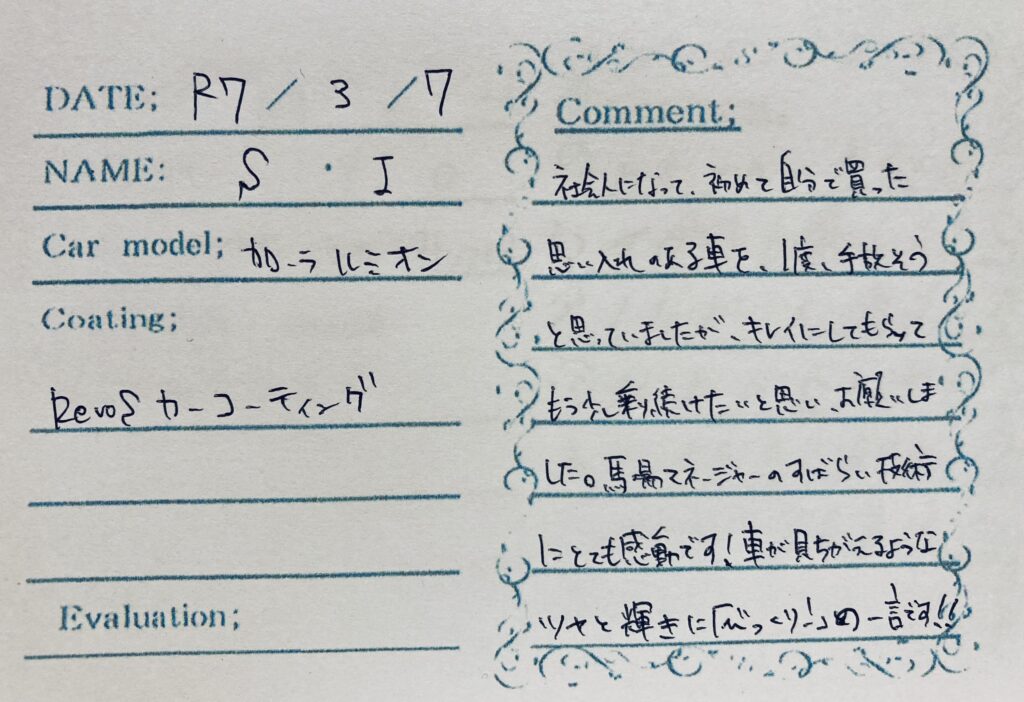 DATE; R7 / 3 / 7
NAME: S ・ I
Car model; カローラ ルミオン
Coating;
Revoς カーコーティング
Evaluation;
Comment;
社会人になって、初めて自分で買った
思い入れのある車を、1度、手放そう
と思っていましたが、キレイにしてもらって
もう少し乗り続けたいと思い、お願いしま
した。馬場マネージャーのすばらしい技術
にとても感動です!車が見ちがえるような
ツヤと輝きに「びっくり!」の一言です!!